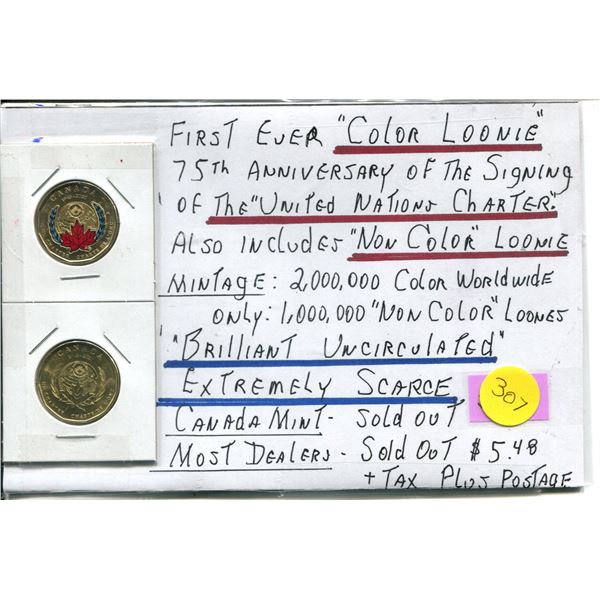 FIRST EVER "COLOR LOONIE"
75TH ANNIVERSARY OF THE SIGNING
OF THE "UNITED NATIONS CHARTER".
ALSO INCLUDES "NON COLOR" LOONIE
MINTAGE: 2,000,000 COLOR WORLDWIDE
ONLY: 1,000,000 "NON COLOR" LOONES
"BRILLIANT UNCIRCULATED"
EXTREMELY SCARCE
307
CANADA MINT - SOLD OUT
MOST DEALERS - SOLD OUT $5.48
+ TAX PLUS POSTAGE
CANADA
CANADA